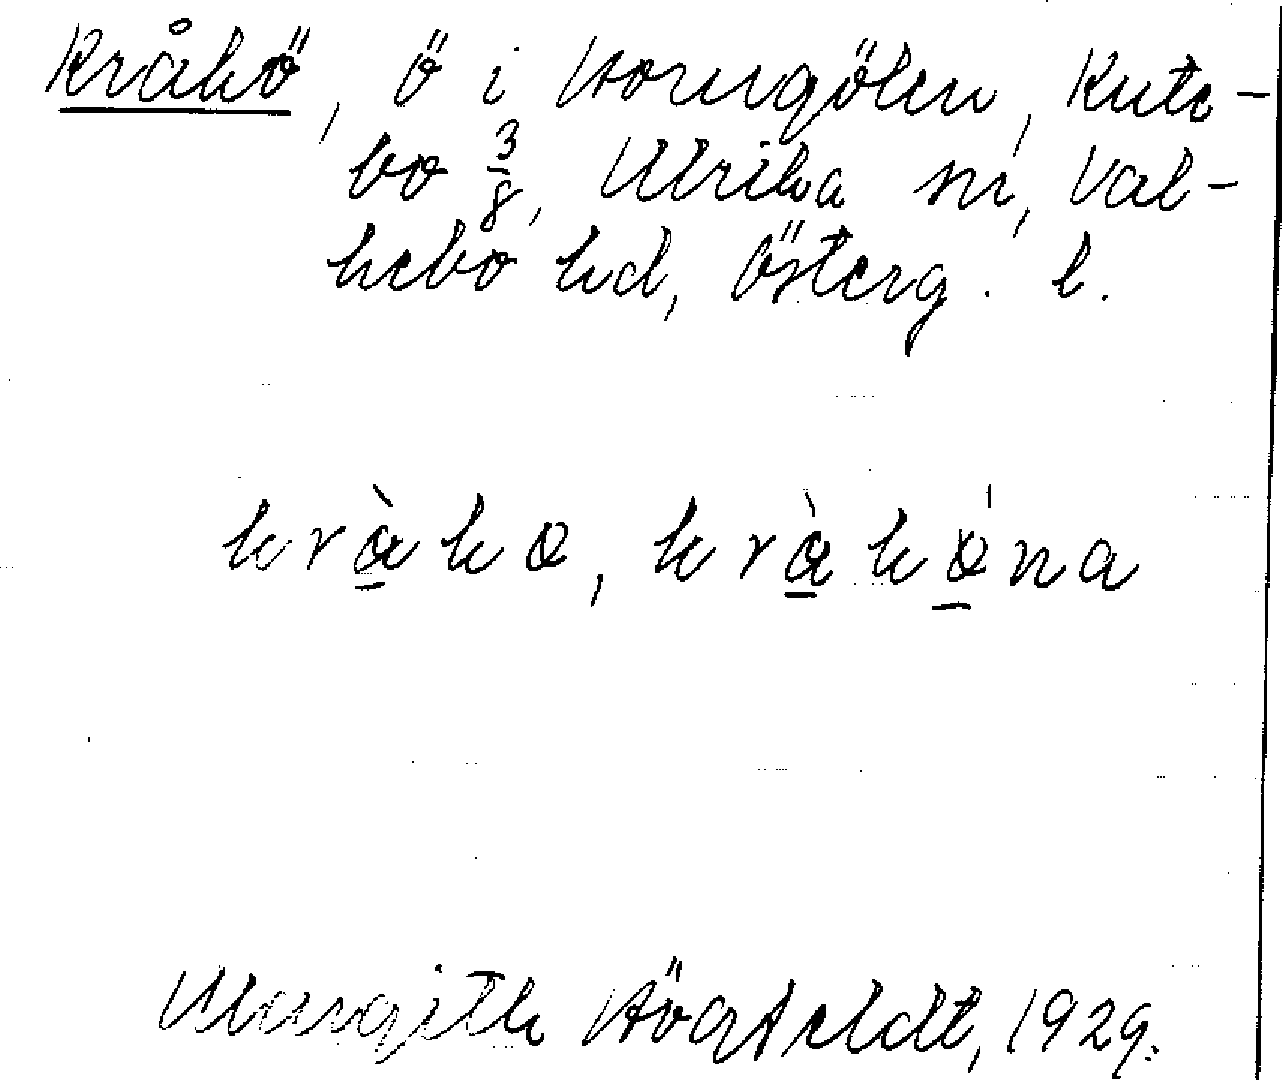 Kråkö, ö i Horngölen, Kute-
bo 3/8, Ulrika sn, Val-
kebo hd, Österg. l.
kràkø, kràkǿna
Margith Högfeldt, 1929.